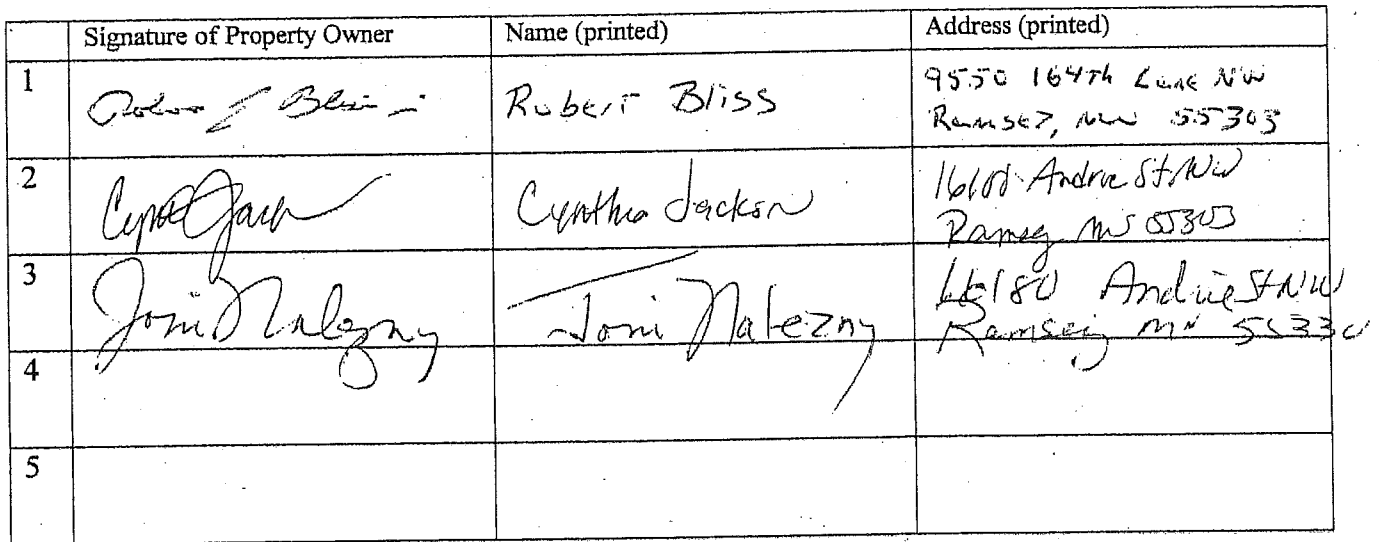 Signature of Property Owner Name (printed) Address (printed)
1
Robert Bliss
9550 164th Lane NW
Ramsey, MN 55303
2
Cynthia Jackson
Andrie St NW
Ramsey MN 55303
3
Joni Nalezny
Joni Nalezny
16180 Andrie St NW
Ramsey MN 55330
4
5